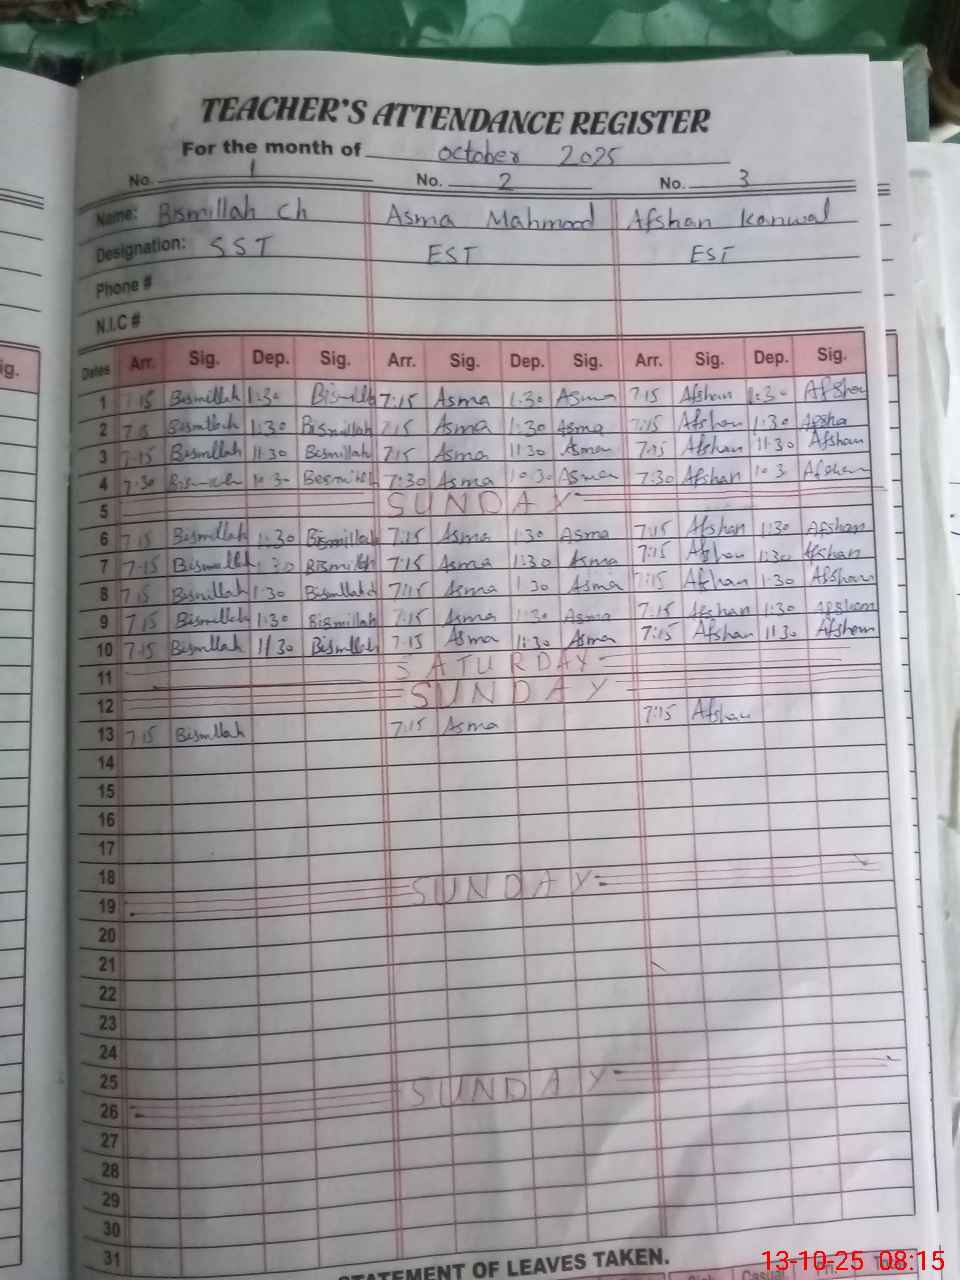 TEACHER'S ATTENDANCE REGISTER
For the month of October 2025
No. 1 No. 2 No. 3
Name: Bismillah Ch Asma Mahmood Afshan Kanwal
Designation: SST EST EST
Phone #
N.I.C #
ig.
Dates Arr. Sig. Dep. Sig. Arr. Sig. Dep. Sig. Arr. Sig. Dep. Sig.
1 7:15 Bismillah 1:30 Bismillah 7:15 Asma 1:30 Asma 7:15 Afshan 1:30 Afshan
2 Bismillah 1:30 Bismillah 7:15 Asma 1:30 Asma 7:15 Afshan 1:30 Afsha
3 7-15 Bismillah 11:30 Bismillah 7:15 Asma 11:30 Asma 7:15 Afshan 11:30 Afshan
4 7:30 Bismillah Bismillah 7:30 Asma 10:30 Asma 7:30 Afshan 10:3 Afshan
5 SUNDAY
6 7:15 Bismillah 1:30 Bismillah 7:15 Asma 1:30 Asma 7:15 Afshan 1:30 Afshan
7 7-15 Bismillah 1:30 Bismillah 7:15 Asma 1:30 Asma 7:15 Afshan 1:30 Afshan
8 7:15 Bismillah 1:30 Bismillah 7:15 Asma 1:30 Asma 7:15 Afshan 1:30 Afshan
9 7:15 Bismillah 1:30 Bismillah 7:15 Asma 1:30 Asma 7:15 Afshan 1:30 Afshan
10 7:15 Bismillah 11:30 Bismillah 7:15 Asma 11:30 Asma 7:15 Afshan 11:30 Afshan
11 SATURDAY
12 SUNDAY
13 7:15 Bismillah 7:15 Asma 7:15 Afshan
14
15
16
17
18
19 SUNDAY
20
21
22
23
24
25
26 SUNDAY
27
28
29
30
31
STATEMENT OF LEAVES TAKEN.
13-10-25 08:15